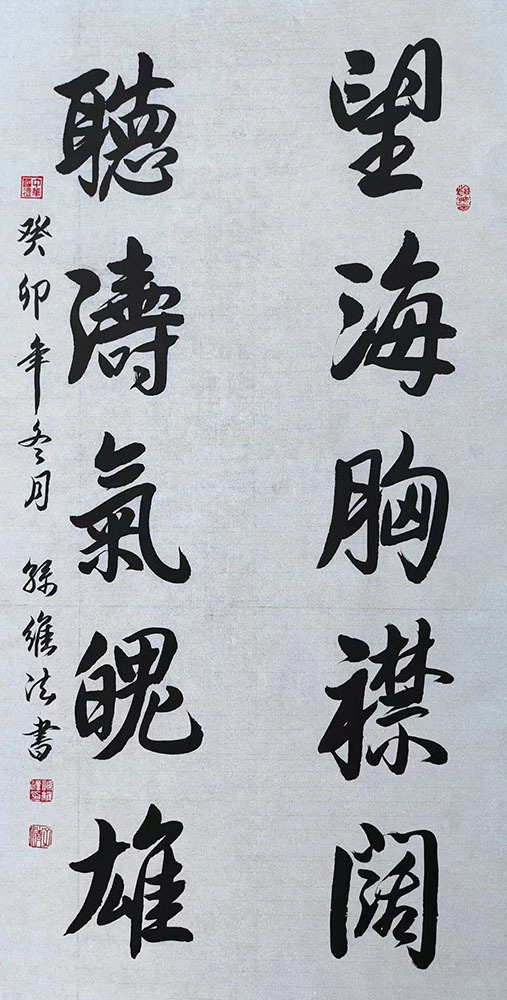 望海胸襟阔
聽濤氣魄雄
癸卯年冬月 孫維法書